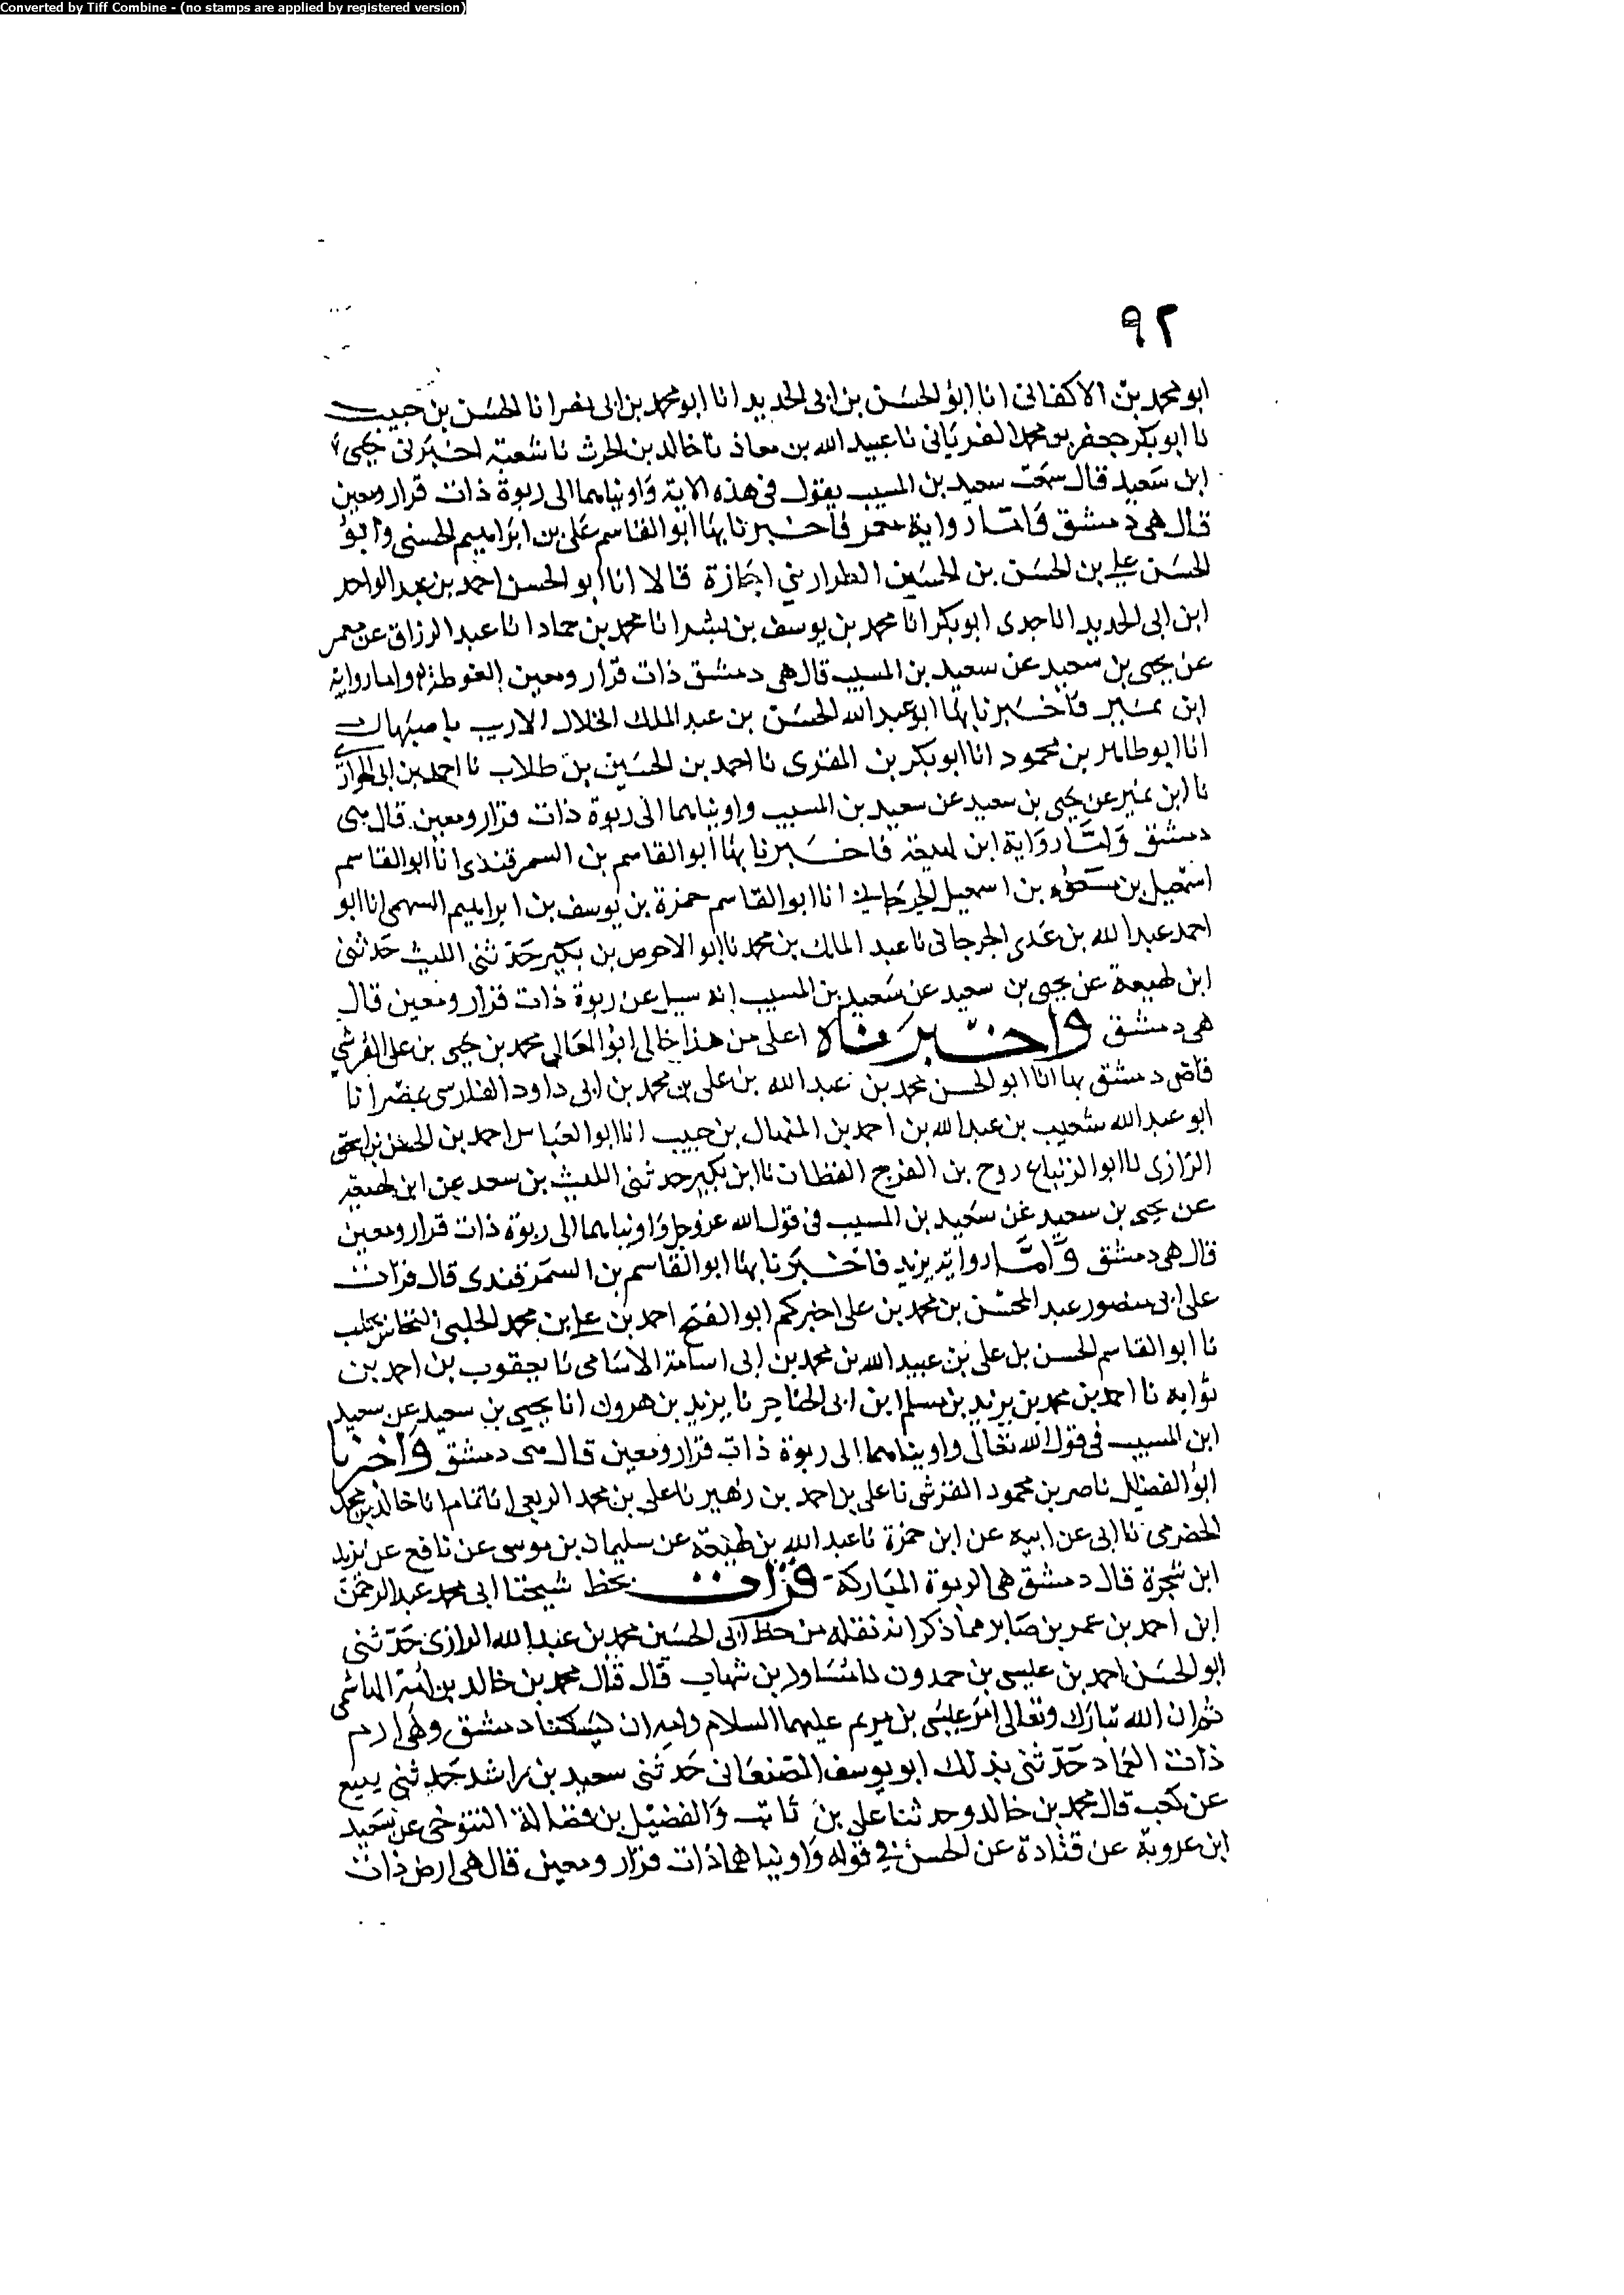 Converted by Tiff Combine - (no stamps are applied by registered version)
٩٢
ابو محمد بن الاكفانى انا ابو الحسن بن ابى الحديد انا ابو محمد بن ابى نصر انا الحسن بن حبيب
نا ابو بكر جعفر بن محمد الفريابى نا عبيد الله بن معاذ نا خالد بن الحرث نا شعبة اخبرنى يحيى
ابن سعيد قال سمعت سعيد بن المسيب يقول فى هذه الاية واويناهما الى ربوة ذات قرار ومعين
قال هى دمشق فاما رواية معمر فاخبرنا بها ابو القاسم على بن ابراهيم الحسنى وابو
الحسن على بن الحسن بن الحسين اجازة قالا انا ابو الحسن احمد بن عبد الواحد
ابن ابى الحديد انا جدى ابو بكر انا محمد بن يوسف بن بشر انا محمد بن حماد انا عبد الرزاق عن معمر
عن يحيى بن سعيد عن سعيد بن المسيب قال هى دمشق ذات قرار ومعين الغوطة واما رواية
ابن نمير فاخبرنا بها ابو عبد الله الحسن بن عبد الملك الخلال الاديب باصبهان
انا ابو طاهر بن محمود انا ابو بكر بن المقرى نا احمد بن الحسين بن طلاب نا احمد بن ابى الحوارى
نا ابن نمير عن يحيى بن سعيد عن سعيد بن المسيب واويناهما الى ربوة ذات قرار ومعين قال هى
دمشق واما رواية ابن لهيعة فاخبرنا بها ابو القاسم بن السمرقندى انا ابو القاسم
اسمعيل بن مسعدة بن اسمعيل الجرجانى انا ابو القاسم حمزة بن يوسف بن ابراهيم السهمى انا ابو
احمد عبد الله بن عدى الجرجانى نا عبد الملك بن محمد نا ابو الاحوص بن بكير حدثنى الليث حدثنى
ابن لهيعة عن يحيى بن سعيد عن سعيد بن المسيب انه سيل عن ربوة ذات قرار ومعين قال
هى دمشق واخبرناه اعلى من هذا خالى ابو المعالى محمد بن يحيى بن على القرشى
قاضى دمشق بها انا ابو الحسن محمد بن عبد الله بن على بن محمد بن ابى داود الفارسى بمصر انا
ابو عبد الله شعيب بن عبد الله بن احمد بن المنهال بن حبيب انا ابو العباس احمد بن الحسن بن اسحق
الرازى نا ابو الزنباع روح بن الفرج القطان نا ابن بكير حدثنى الليث بن سعد عن ابن لهيعة
عن يحيى بن سعيد عن سعيد بن المسيب فى قول الله عز وجل واويناهما الى ربوة ذات قرار ومعين
قال هى دمشق واما رواية يزيد فاخبرنا بها ابو القاسم بن السمرقندى قال قرات
على ابى منصور عبد المحسن بن محمد بن على اخبركم ابو الفتح احمد بن على بن محمد الحلبى النحاس بحلب
نا ابو القاسم الحسن بن على بن عبيد الله بن محمد بن ابى اسامة الاسامى نا يعقوب بن احمد بن
ثوابه نا احمد بن محمد بن يزيد بن مسلم ابن ابى الخناجر نا يزيد بن هرون انا يحيى بن سعيد عن سعيد
ابن المسيب فى قول الله تعالى واويناهما الى ربوة ذات قرار ومعين قال هى دمشق واخبرنا
ابو الفضايل ناصر بن محمود القرشى نا على بن احمد بن زهير نا على بن محمد الربعى انا تمام انا خالد بن محمد
الحضرمى نا ابى عن ابيه عن ابن حمزة نا عبد الله بن لهيعة عن سليمان بن موسى عن نافع عن يزيد
ابن شجرة قال دمشق هى الربوة المباركة قرات بخط شيخنا ابى محمد عبد الرحمن
ابن احمد بن عمر بن صابر مما ذكر انه نقله من خط ابى الحسين محمد بن عبد الله الرازى حدثنى
ابو الحسن احمد بن عيسى بن حمدون نا مساور بن شهاب قال قال محمد بن خالد بن امة الهاشمى
ثم ان الله تبارك وتعالى امر عيسى بن مريم عليهما السلام وامه ان يسكنا دمشق وهى ارم
ذات العماد حدثنى بذلك ابو يوسف الصنعانى حدثنى سعيد بن راشد حدثنى يبيع
عن كعب قال محمد بن خالد وحدثنا على بن ثابت والفضيل بن فضالة التنوخى عن سعيد
ابن عروبة عن قتادة عن الحسن فى قوله واويناهما ذات قرار ومعين قال هى ارض ذات